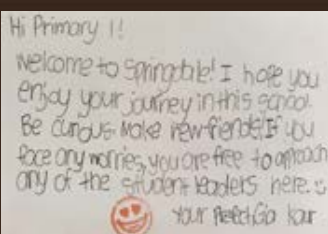 Hi Primary 1!
Welcome to Springdale! I hope you
enjoy your journey in this school.
Be curious. Make new friends! If you
face any worries, you are free to approach
any of the student leaders here.
Your Prefect, Gia